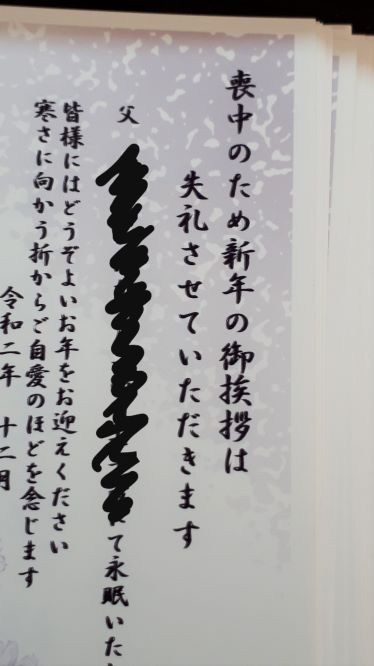 喪中のため新年の御挨拶は
失礼させていただきます
父
て永眠いた
皆様にはどうぞよいお年をお迎えください
寒さに向かう折からご自愛のほどを念じます
令和二年 十二月